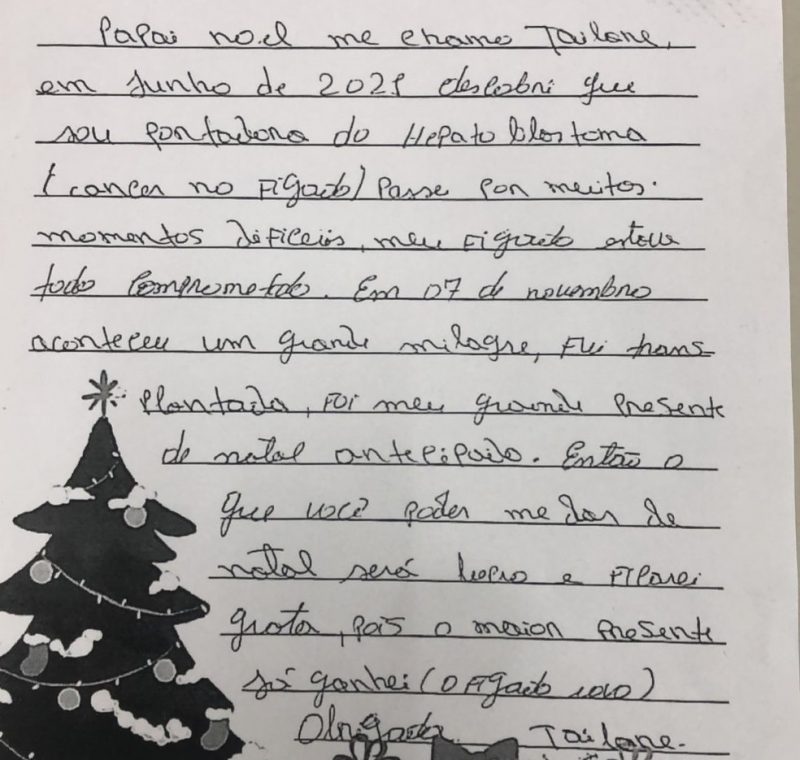 Papai noel me chamo Tailane,
em Junho de 2021 descobri que
sou portadora do Hepato blastoma
(cancer no Figado) Passe por muitos
momentos dificeis, meu Figado estava
todo Comprometido. Em 07 de novembro
aconteceu um grande milagre, Fui trans
Plantada, Foi meu grande Presente
de natal antecipado. Então o
que você poder me dar de
natal será lucro e Ficarei
grata, pois o maior Presente
já ganhei (o Figado novo)
Obrigada Tailane.